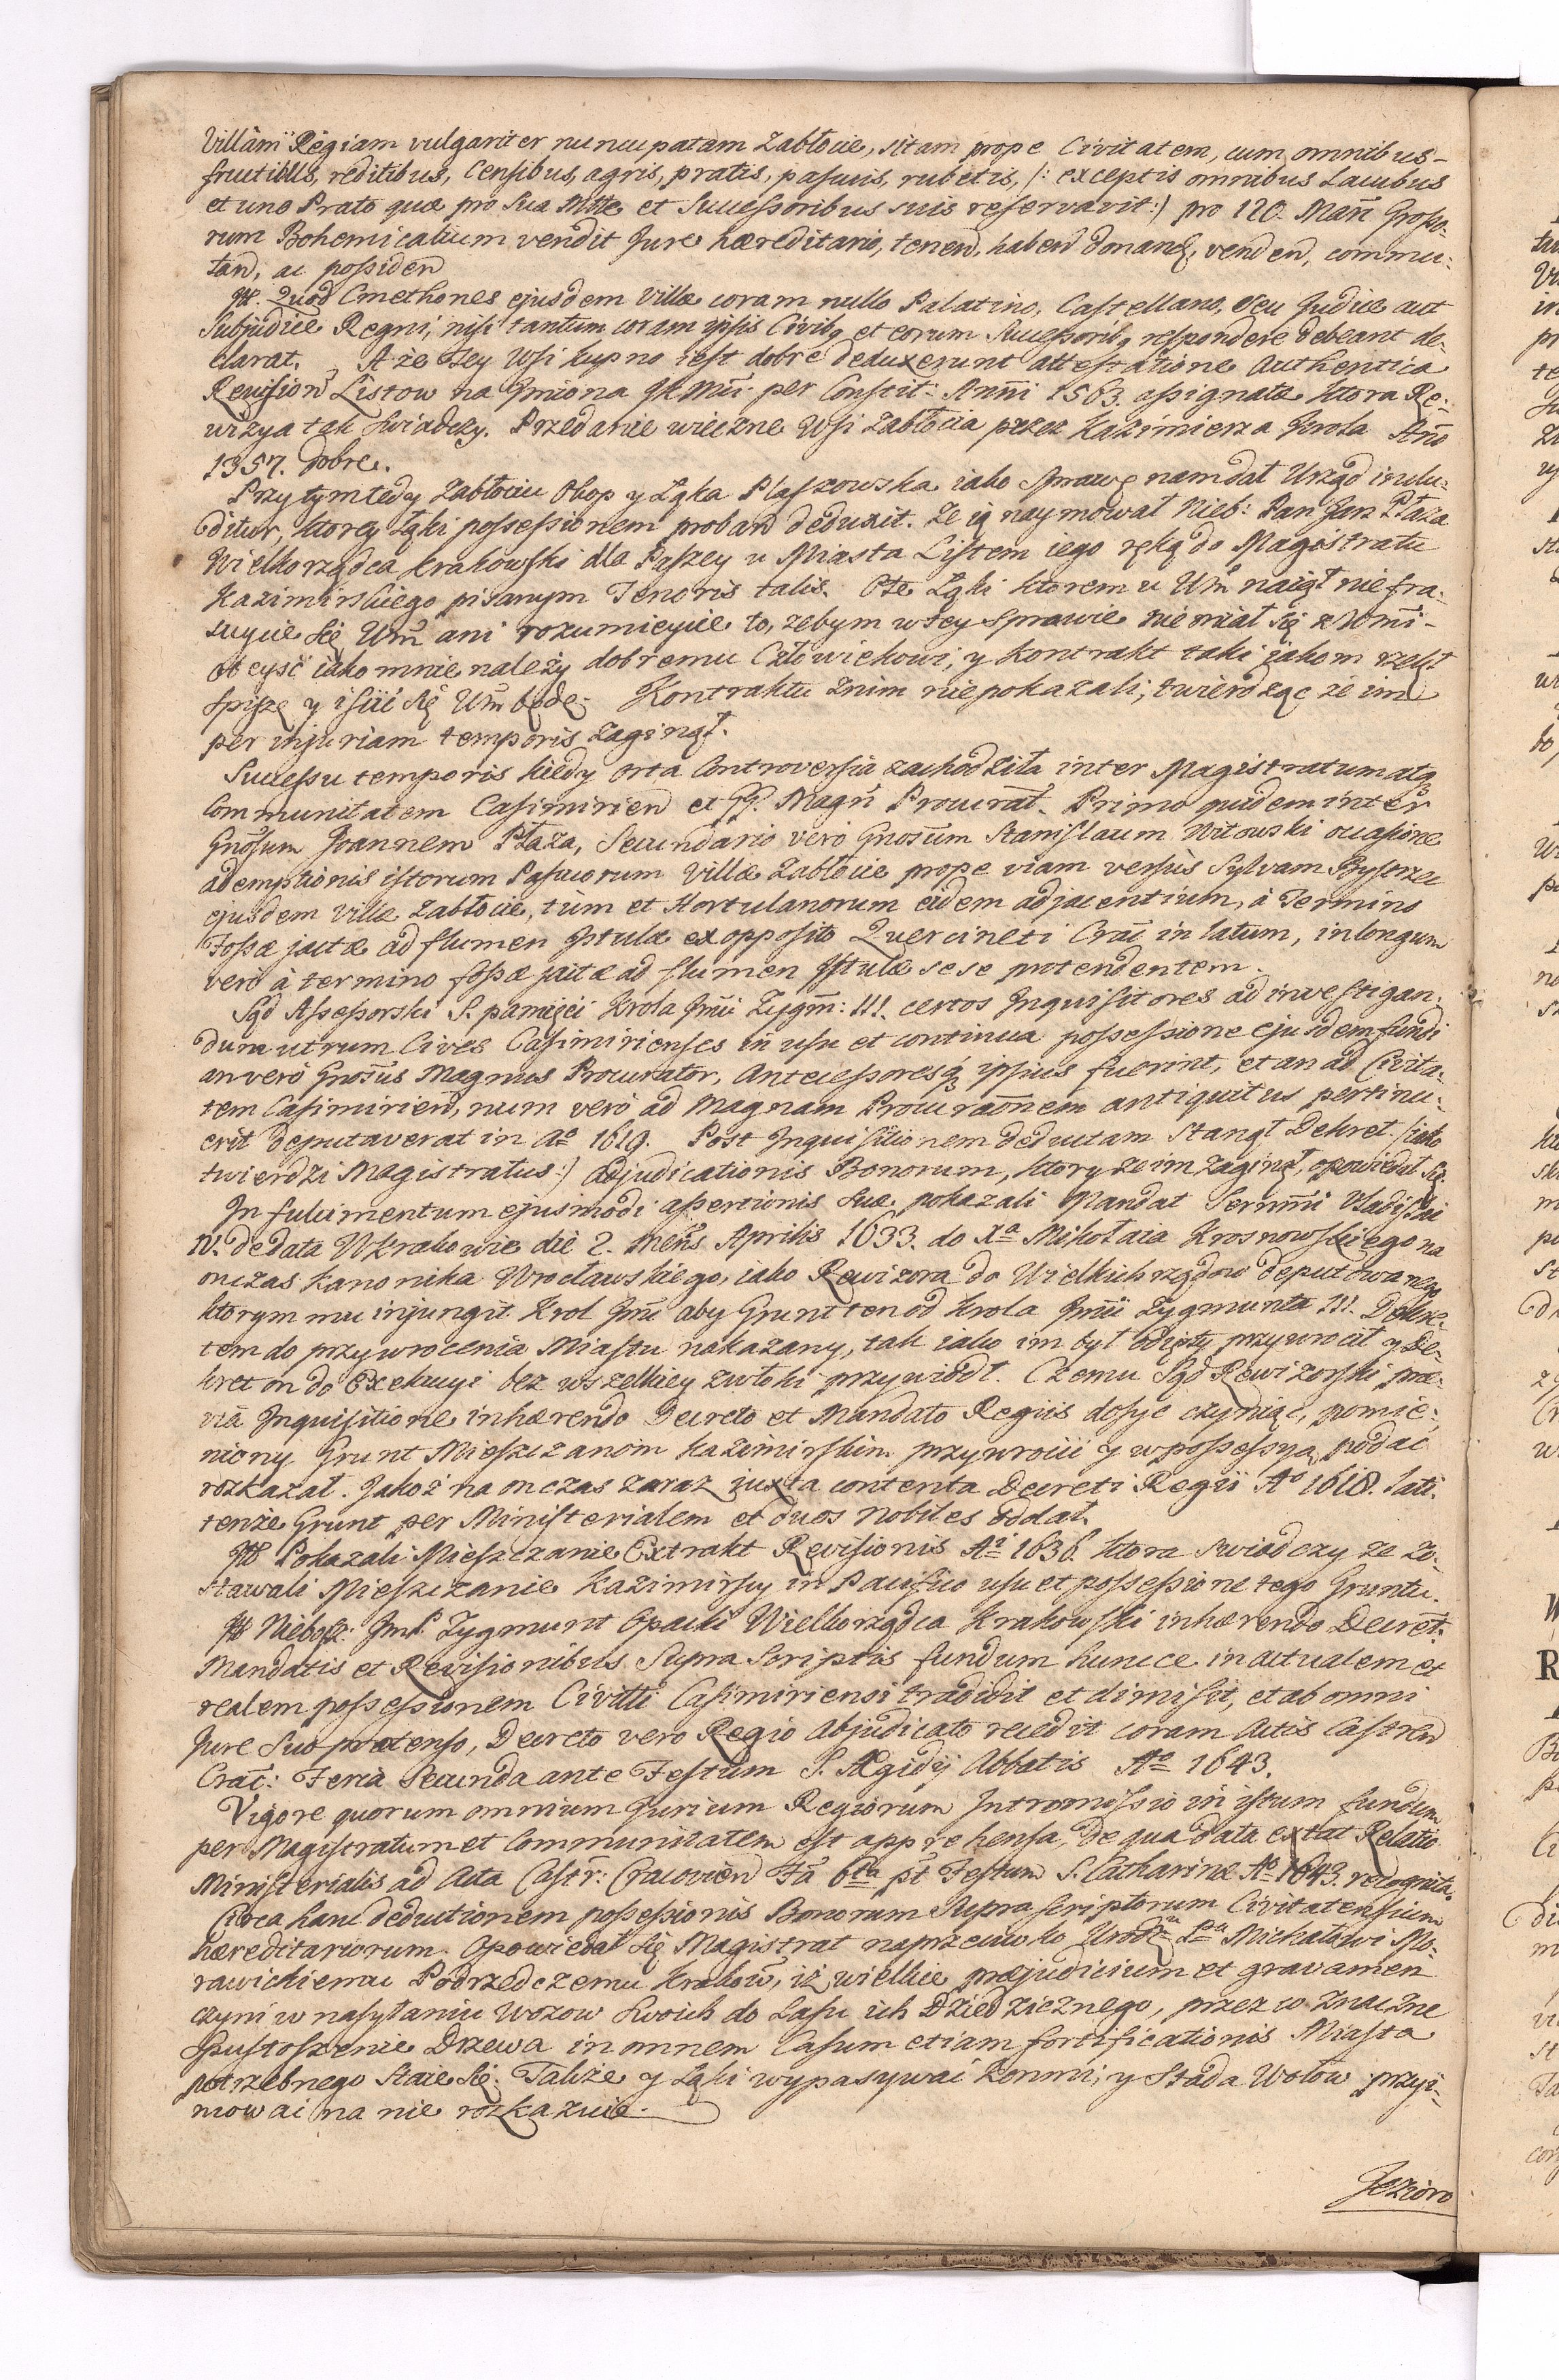 Villam Regiam vulgariter nuncupatam Zabłocie, sitam prope Civitatem, cum omnibus-
fructibus, reditibus, Censibus, agris, pratis, pascuis, rubetis, /: exceptis omnibus Lacubus
et uno Prato quæ pro Sua Mtte et Successoribus suis reservavit:/ pro 120. Marc Grosso-
rum Bohemicalium vendit Jure hæreditario, tenend, habend donand, vendend, commu-
tand, ac possidend
Itt. Quod Cmethones ejusdem Villæ coram nullo Palatino, Castellano, seu Judice aut
Subjudice Regni, nisi tantum coram ipsis Civibq et eorum Successoribq respondere debeant de-
clarat. A że tey Wsi kupno iest dobre deduxerunt attestatione Authentica
Revision Listow na Imiona JKMci per Constit: Anni 1563. assignatæ ktora Re-
wizya tak świadczy. Przedanie wieczne Wsi Zabłocia przez Kazimierza Krola Ano
1357. dobre.
Przy tym tedy Zabłociu Okop y Łąka Płaszowska iako sprawę nam dał Urząd inclu-
ditur, ktorey Łąki possessionem proband deduxit. Ze ią naymował Nieb: Pan Jan Płaza
Wielkorządca Krakowski dla Pszey u Miasta Listem iego ręką do Magistratu
Kazimirskiego pisanym Tenoris talis. Ote Łąki ktorem u Wm naiął nie fra-
suycie się Wm ani rozumieycie to, zebym w tey sprawie nie miał się z Wmi-
obeyść iako mnie należy dobremu Człowiekowi, y Kontrakt taki iakom rzekł
spiszę y iścić się Wm będę. Kontraktu znim nie pokazali, twierdząc że im
per injuriam temporis zaginął.
Successu temporis kiedy orta Controversia zachodziła inter Magistratum atq
Communitatem Casimirien et GG. Magn Procurat. Primo quidem inter
Gnosum Joannem Płaza, Secundario vero Gnosum Stanislaum Witowski occasione
ademptionis istorum Pascuorum Villæ Zabłocie prope viam versus Sylvam Bystrzec
ejusdem villæ Zabłocie, tùm et Hortulanorum eidem adjacentium, à Termino
Fossæ jactæ ad flumen Istulæ ex opposito Quercineti Crac in latum, in longum
vero à termino fossæ jactæ ad flumen Istulæ sese protendentem.
Sąd Assessorski S. pamięci Krola Jmci Zygm: III. certos Inquisitores ad investigan-
dum utrum Cives Casimirienses in usu et continua possessione ejusdem fundi
an verò Gnosus Magnus Procurator, Antecessoresq ipsius fuerint, et an ad Civita-
tem Casimirien, num verò ad Magnam Procuraonem antiquitus pertinu-
erit deputaverat in Ao 1619. Post Inquisitionem deductam Stanął Dekret /:iako
twierdzi Magistratus:/ adjudicationis Bonorum, ktory ze im zaginął, opowiedał się.
In fulcimentum ejusmodi assertionis suæ pokazali Mandat Sernmi Vladislai
IV. de data W Krakowie die 2. Mens Aprilis 1633. do Xa Mikołaia Krosnowskiego na
onczas Kanonika Wrocławskiego, iako Rewizora do Wielkichrządow deputowanego
ktorym mu injungit Krol Jmc aby Grunt ten od Krola Jmci Zygmunta III. Dekre-
tem do przywrocenia Miastu nakazany, tak iako im był odięty przywrocił y De-
kret on do Exekucyi bez wszelkiey zwłoki przywiódł. Czemu Sąd Rewizorski præ-
viâ Inquisitione inhærendo Decreto et Mandato Regiis dosyć czyniąc, pomie-
niony Grunt Mieszczanom Kazimirskim przywrocić y w possessyą podać
rozkazał. Jakoż na onczas zaraz juxta contenta Decreti Regii Ao 1618. lati.
tenże Grunt per Ministerialem et duos Nobiles oddał.
Itt Pokazali Mieszczanie Extrakt Revisionis Ai 1636. ktora swiadczy ze zo-
stawali Mieszczanie Kazimirscy in Pacifico usu et possessione tego Gruntu.
Itt Niebosz: JmP. Zygmunt Opacki Wielkorządca Krakowski inhærendo Decret:
Mandatis et Revisionibus Supra Scriptis fundum hunce in actualem et
realem possessionem Civitti Casimiriensi tradidit et dimisit, et ab omni
Jure Suo prætenso, Decreto vero Regio abjudicato recedit coram Actis Castren
Crac: Feria Secunda ante Festum S. Ægidij Abbatis Ao 1643.
Vigore quorum omnium Jurium Regiorum Intromissio in istum fundum
per Magistratum et Communitatem est apprehensa, de qua data extat Relatio
Ministerialis ad Acta Castr: Cracovien Fa 6ta pt Festum S. Catharinæ Ao 1643. recognita.
Circa hanc deductionem possessionis Bonorum Supra scriptorum Civitatensium
hæreditariorum. Opowiedał się Magistrat naprzeciwko Urodz Pu Michałowi Mo-
rawickiemu Podrzędczemu Krakow, iż wielkie præjudicium et gravamen
czyni w nasyłaniu Wozow swoich do Lasu ich Dziedzicznego, przez co znaczne
spustoszenie Drzewa in omnem Casum etiam fortificationis Miasta
potrzebnego staie się. Takze y Łąki wypasywać konmi, y Stada Wołow przyi-
mować na nie rozkazuie.
Jezioro